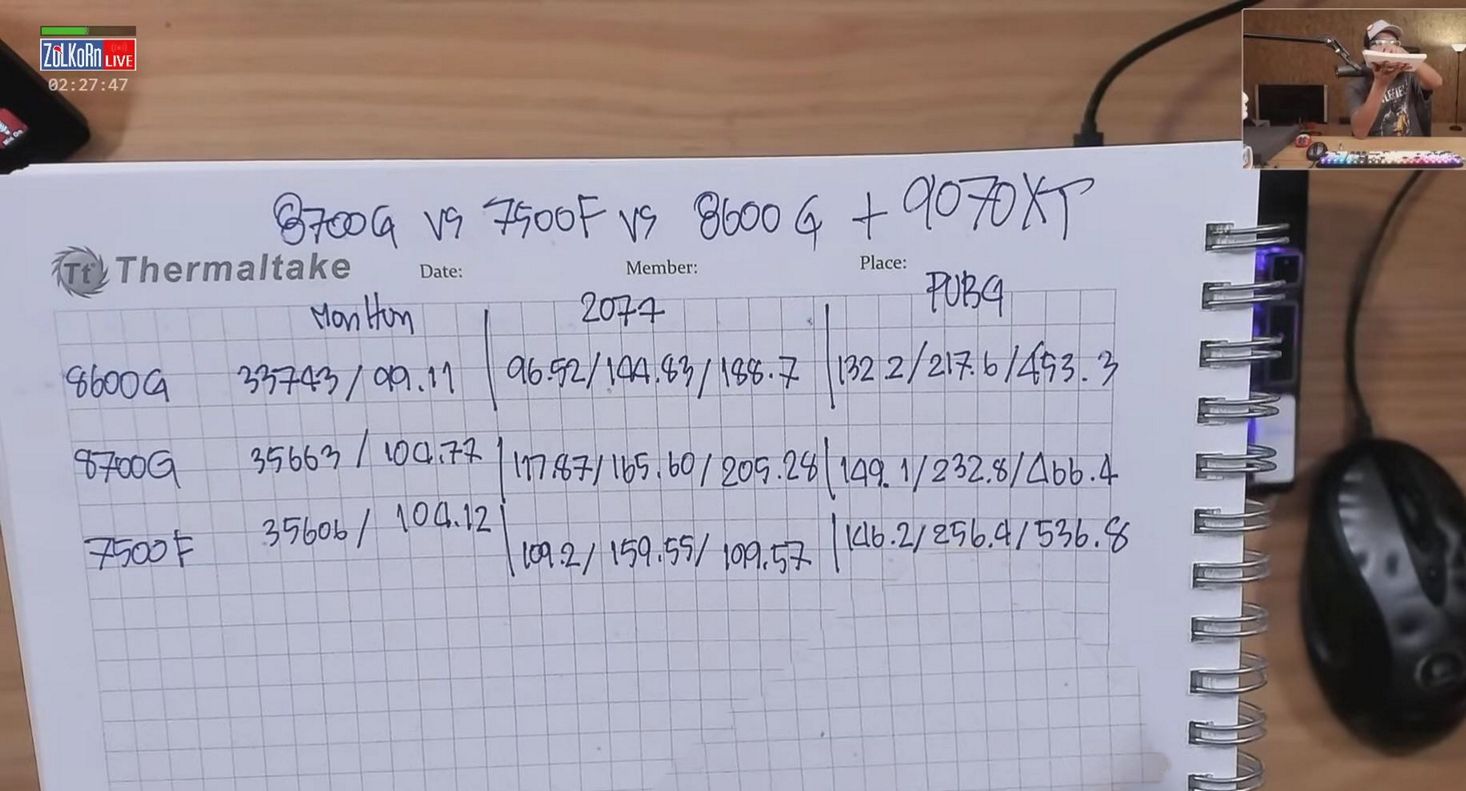 ZOLKORn LIVE
02:27:47
8700G vs 7500F vs 8600G + 9070XT
Tt Thermaltake Date: Member: Place:
MonHun 2077 PUBG
8600G 33743/99.11 96.52/144.83/188.7 132.2/217.6/453.3
8700G 35663/104.77 117.87/165.60/205.28 149.1/232.8/466.4
7500F 35606/104.12 109.2/159.55/199.57 146.2/256.4/536.8